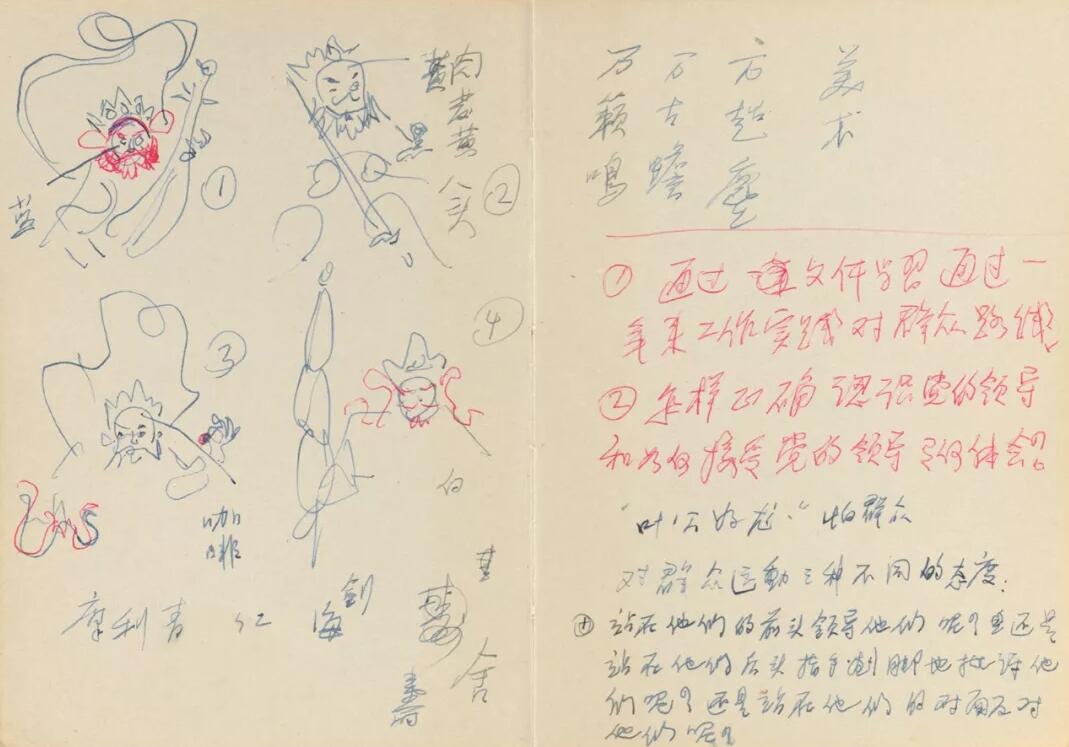 黄
肉
老黄
①
②
蓝
③
④
咖啡
白
摩利青
海
剑
寿
舍
万籁鸣
万古蟾
万超塵
美术
① 通过文件学習通过一
年来工作实践对群众路线
② 怎样正确認识党的领导
和如何接受党的领导有何体会。
"叶公好龙" 怕群众
对群众运動三种不同的态度.
站在他们的前头领导他们呢?还是
站在他们后头指手划脚地批评他
们呢?还是站在他们的对面反对
他们呢?